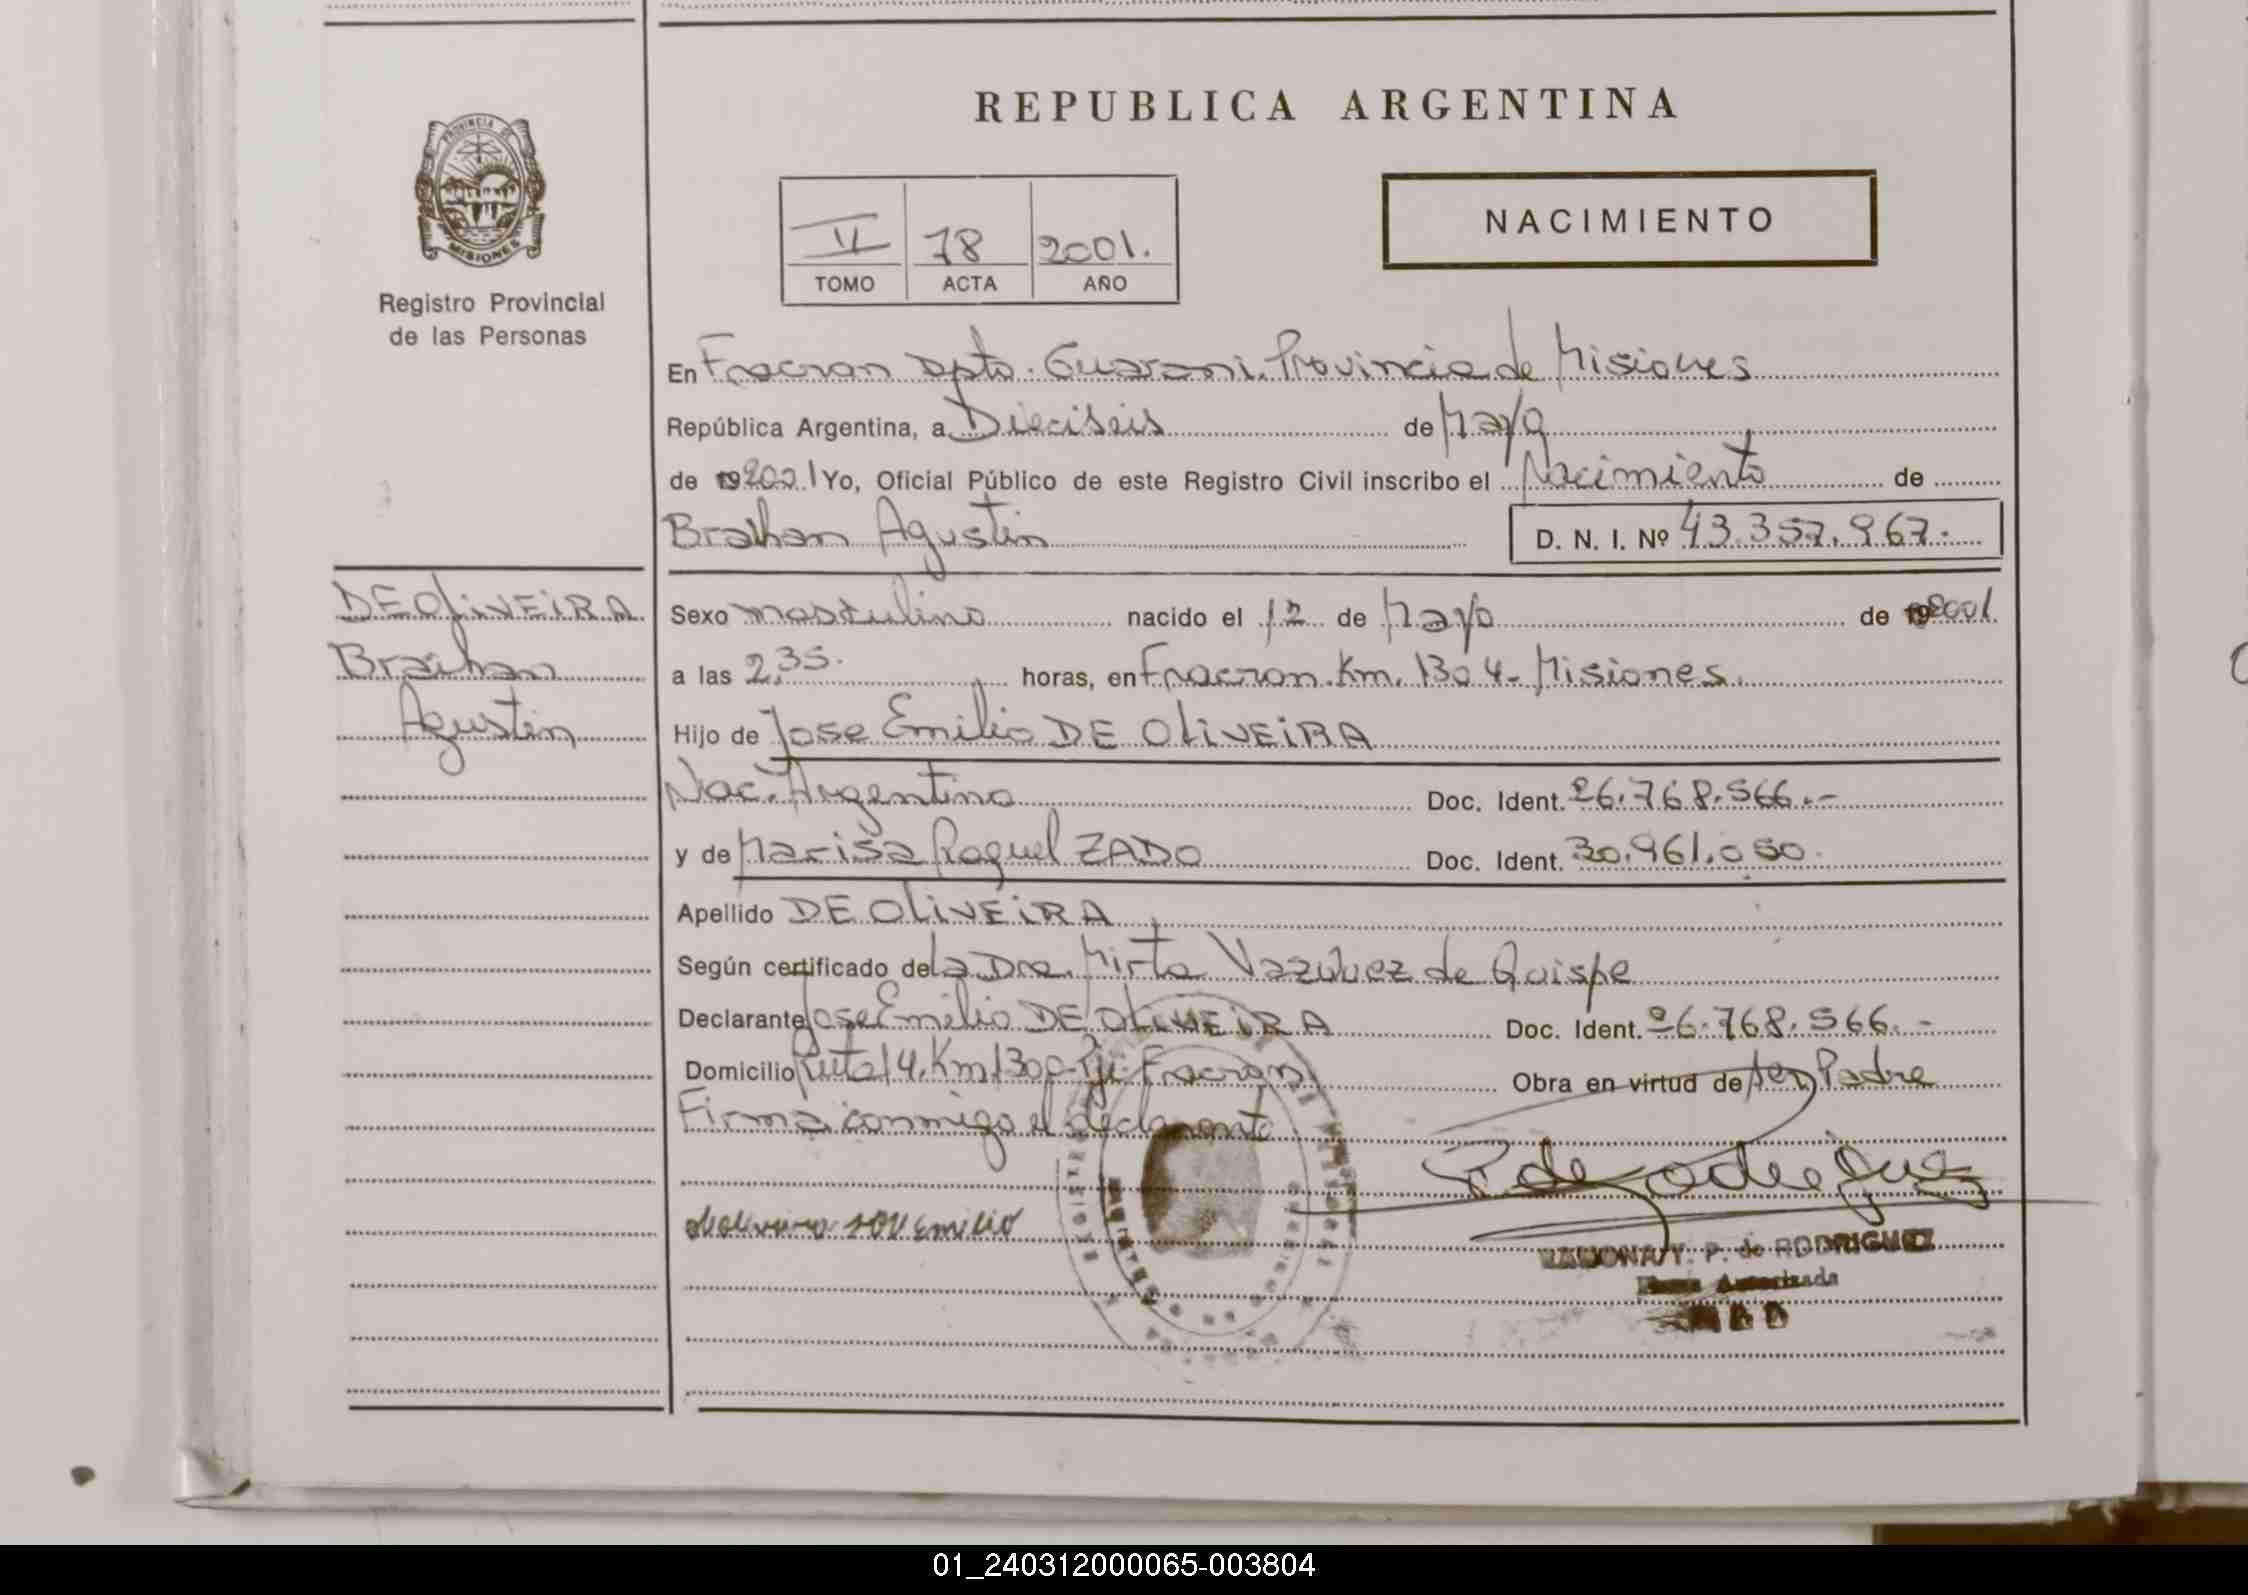 REPUBLICA ARGENTINA
PROVINCIA DE MISIONES
Registro Provincial
de las Personas
II 78 2001.
TOMO ACTA AÑO
NACIMIENTO
En Fracran Dpto. Guarani. Provincia de Misiones
República Argentina, a Dieciseis de Mayo
de 19 2001 Yo, Oficial Público de este Registro Civil inscribo el Nacimiento de
Braihan Agustin D. N. I. Nº 43.357.967.
DE OLIVEIRA
Braihan
Agustin
Sexo masculino nacido el 12 de Mayo de 19 2001.
a las 2,35. horas, en Fracran. Km. 1304- Misiones.
Hijo de Jose Emilio DE OLIVEIRA
Nac. Argentino Doc. Ident. 26.768.566.-
y de Marisa Raquel ZADO Doc. Ident. 30.961.050.
Apellido DE OLIVEIRA
Según certificado de la Dra. Mirta Vazquez de Quispe
Declarante Jose Emilio DE OLIVEIRA Doc. Ident. 26.768.566.-
Domicilio Ruta 14. Km 1300 Fracran Obra en virtud de ser Padre
Firma conmigo el declarante
P. de Rodriguez
RAMONA Y. P. de RODRIGUEZ
Autorizada
01_240312000065-003804